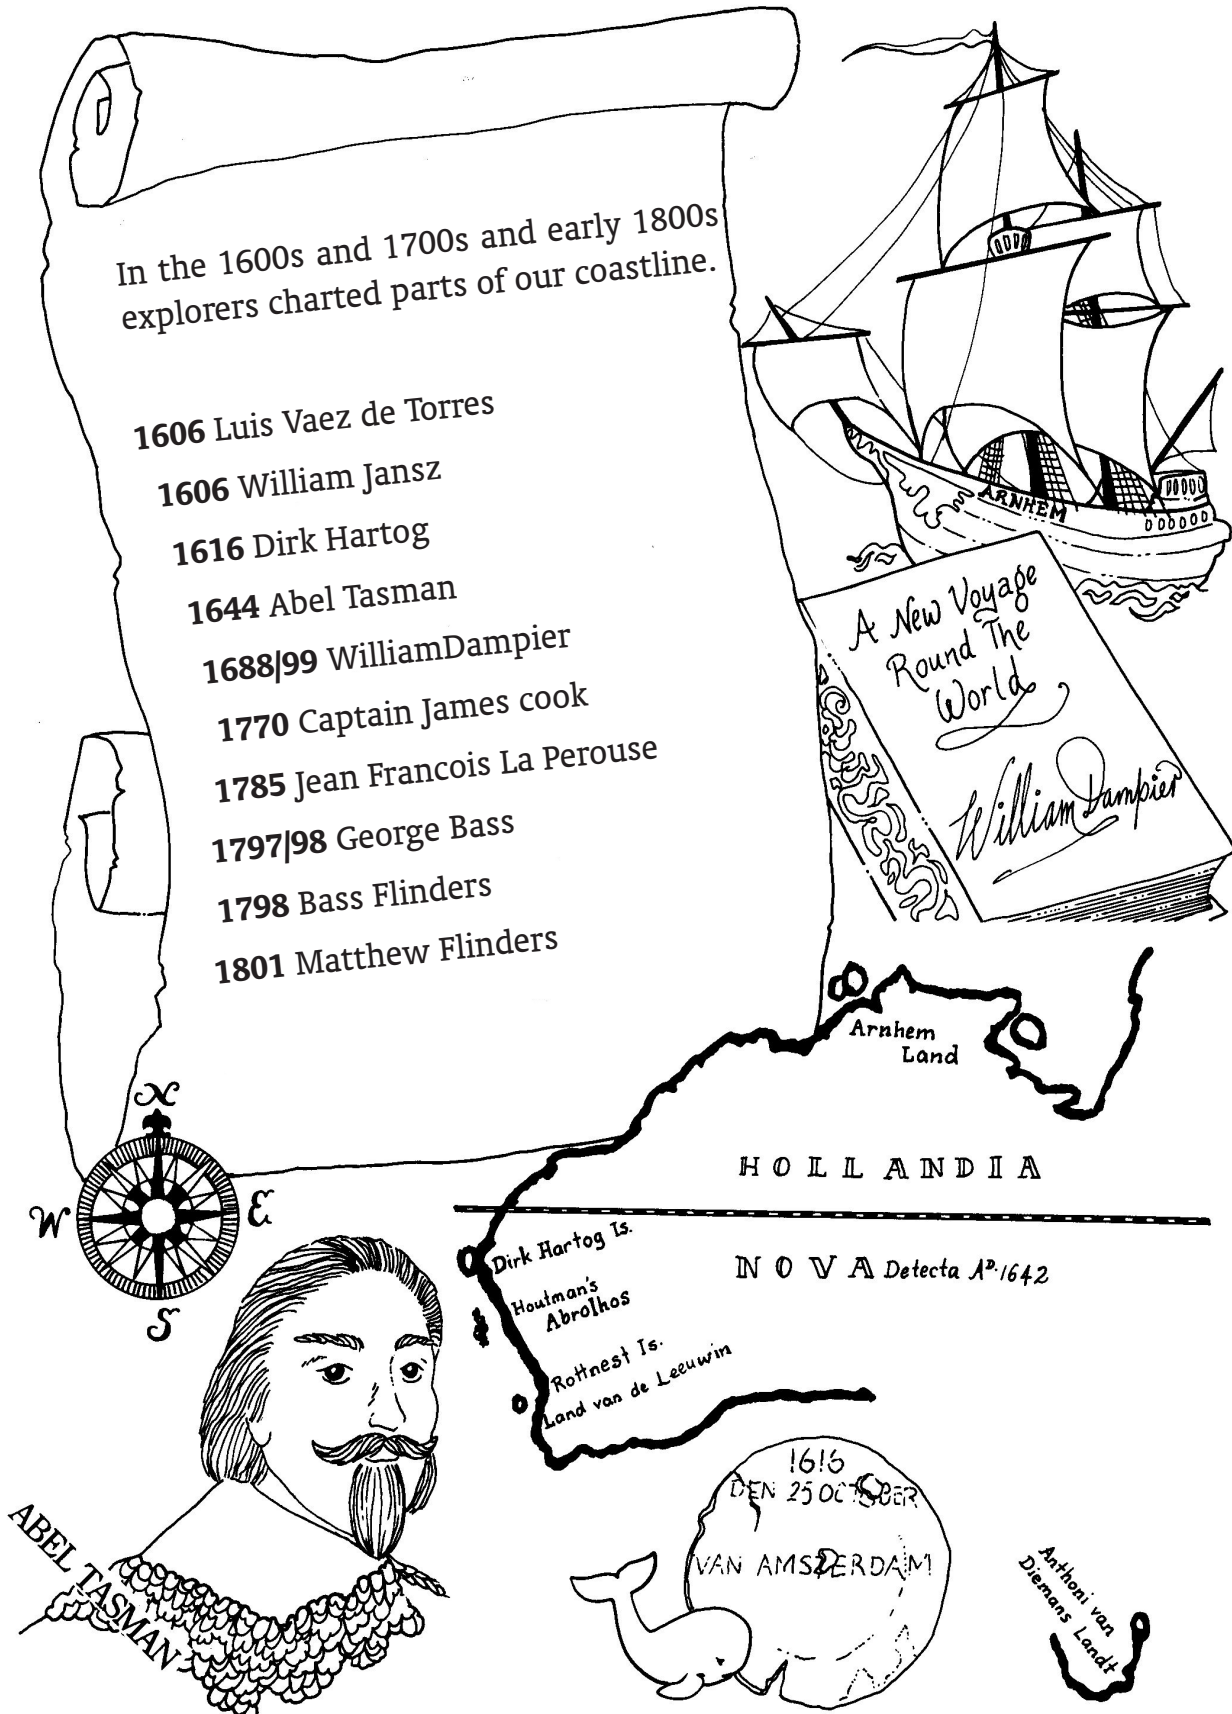 In the 1600s and 1700s and early 1800s
explorers charted parts of our coastline.
1606 Luis Vaez de Torres
1606 William Jansz
1616 Dirk Hartog
1644 Abel Tasman
1688/99 WilliamDampier
1770 Captain James cook
1785 Jean Francois La Perouse
1797/98 George Bass
1798 Bass Flinders
1801 Matthew Flinders
ARNHEM
A New Voyage
Round The
World
William Dampier
Arnhem
Land
HOLLANDIA
NOVA Detecta Aᴰ·1642
Dirk Hartog Is.
Houtman's
Abrolhos
Rottnest Is.
Land van de Leeuwin
N
W
E
S
ABEL TASMAN
1616
DEN 25 OCTOBER
VAN AMSTERDAM
Anthoni van
Diemans Landt